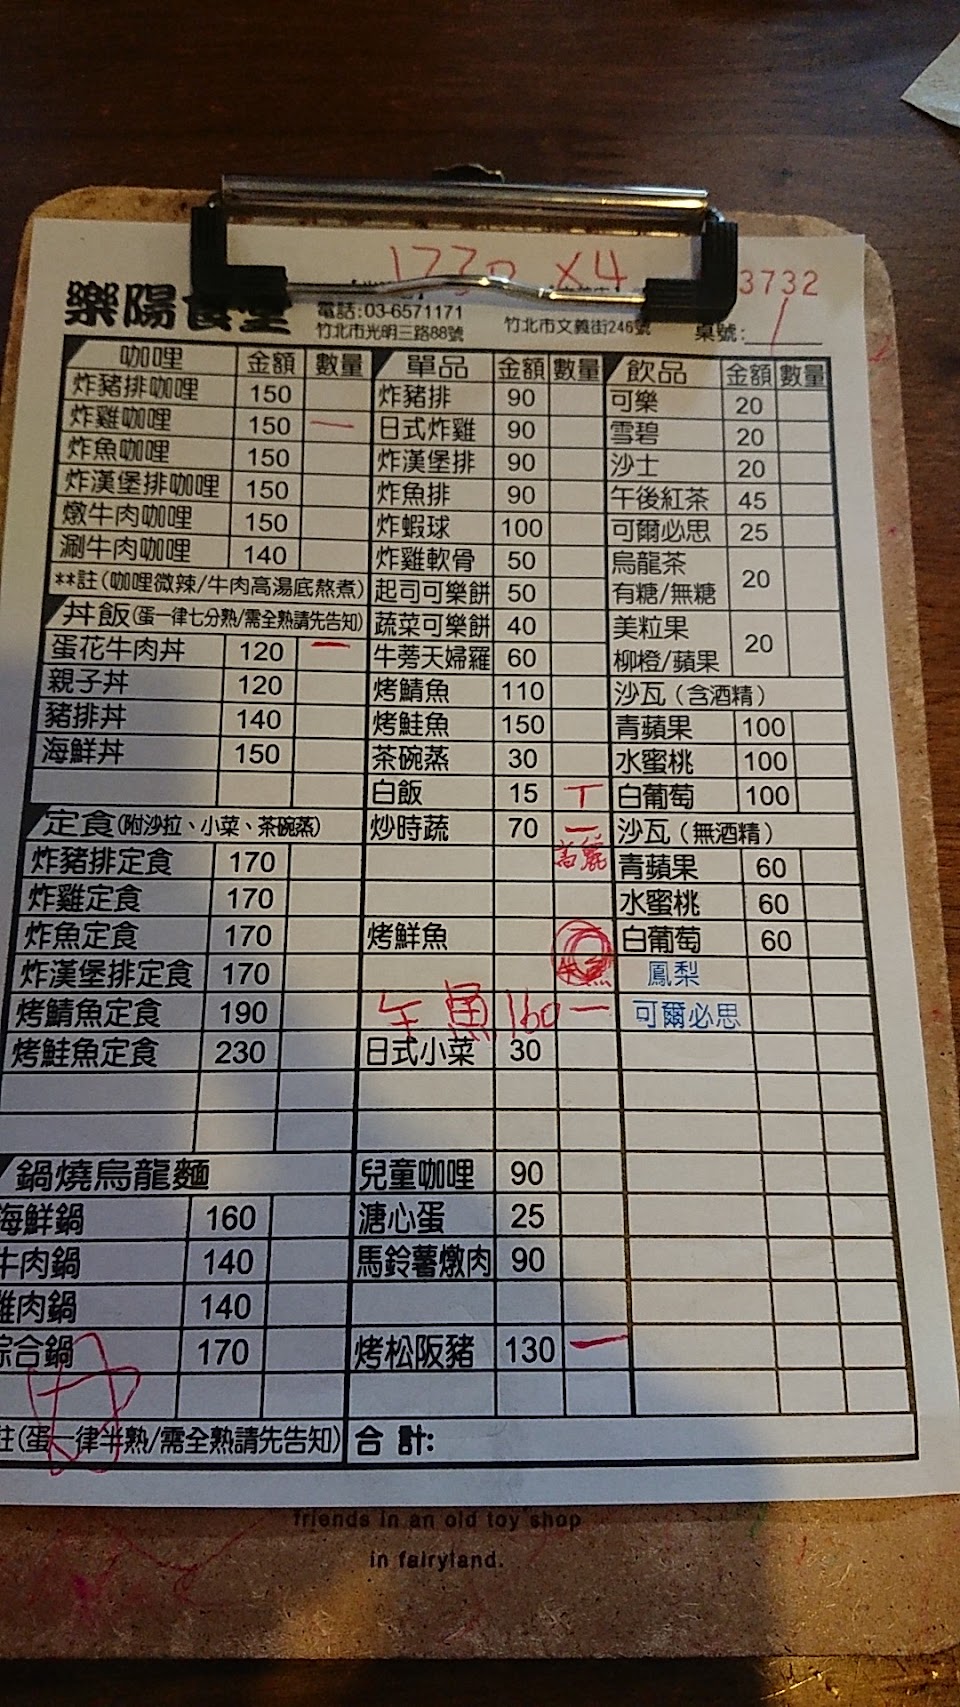 1730 X4
3732
樂陽食堂
電話:03-6571171
竹北市光明三路88號
竹北市文義街246號
桌號: 1
咖哩 金額 數量
炸豬排咖哩 150
炸雞咖哩 150 一
炸魚咖哩 150
炸漢堡排咖哩 150
燉牛肉咖哩 150
涮牛肉咖哩 140
**註(咖哩微辣/牛肉高湯底熬煮)
丼飯(蛋一律七分熟/需全熟請先告知)
蛋花牛肉丼 120 一
親子丼 120
豬排丼 140
海鮮丼 150
定食(附沙拉、小菜、茶碗蒸)
炸豬排定食 170
炸雞定食 170
炸魚定食 170
炸漢堡排定食 170
烤鯖魚定食 190
烤鮭魚定食 230
鍋燒烏龍麵
海鮮鍋 160
牛肉鍋 140
雞肉鍋 140
綜合鍋 170
註(蛋一律半熟/需全熟請先告知)
單品 金額 數量
炸豬排 90
日式炸雞 90
炸漢堡排 90
炸魚排 90
炸蝦球 100
炸雞軟骨 50
起司可樂餅 50
蔬菜可樂餅 40
牛蒡天婦羅 60
烤鯖魚 110
烤鮭魚 150
茶碗蒸 30
白飯 15 T
炒時蔬 70 一
高麗
烤鮮魚
午魚 160 一
日式小菜 30
兒童咖哩 90
溏心蛋 25
馬鈴薯燉肉 90
烤松阪豬 130 一
合計:
飲品 金額 數量
可樂 20
雪碧 20
沙士 20
午後紅茶 45
可爾必思 25
烏龍茶
有糖/無糖 20
美粒果
柳橙/蘋果 20
沙瓦(含酒精)
青蘋果 100
水蜜桃 100
白葡萄 100
沙瓦(無酒精)
青蘋果 60
水蜜桃 60
白葡萄 60
鳳梨
可爾必思
friends in an old toy shop
in fairyland.